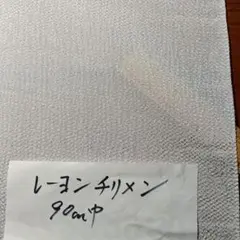 レーヨンチリメン
90cm巾